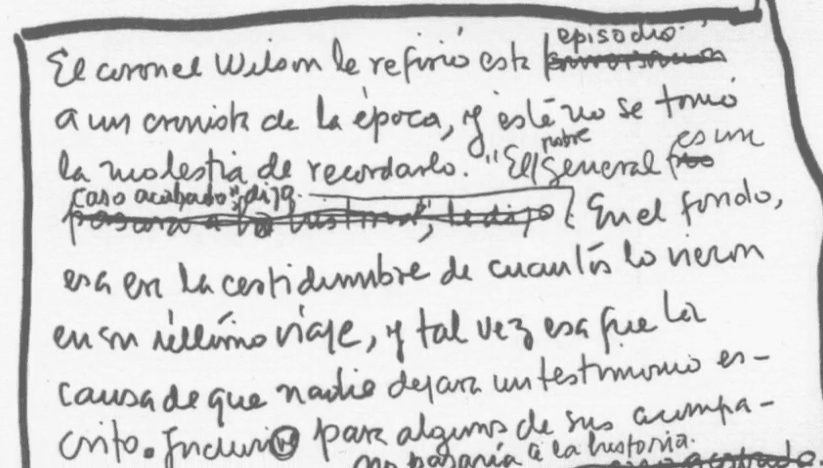 episodio.
El coronel Wilson le refirió este
a un cronista de la época, y éste no se tomó
la molestia de recordarlo. "El pobre General es un
caso acabado", dijo.
En el fondo,
esa era la certidumbre de cuantos lo vieron
en su último viaje, y tal vez esa fue la
causa de que nadie dejara un testimonio es-
crito. Incluso para algunos de sus acompa-
no pasaría a la historia.